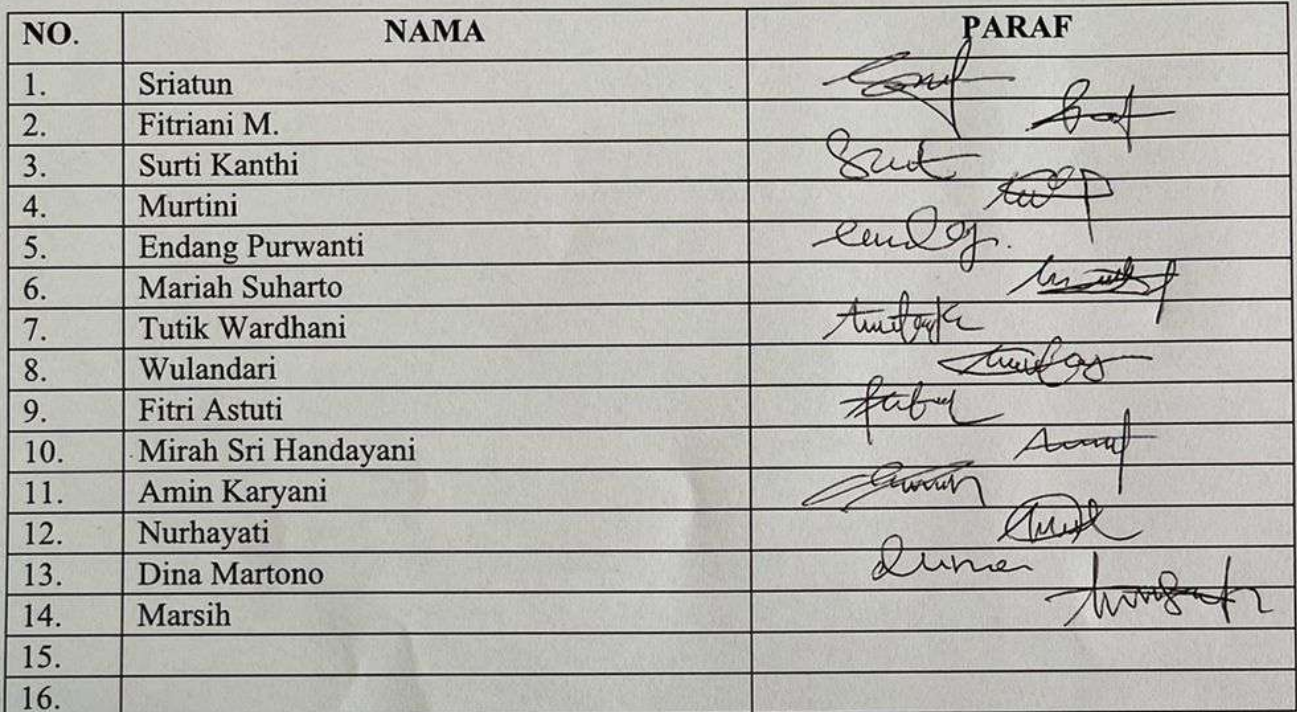 NO. NAMA PARAF
1. Sriatun
2. Fitriani M.
3. Surti Kanthi
4. Murtini
5. Endang Purwanti
6. Mariah Suharto
7. Tutik Wardhani
8. Wulandari
9. Fitri Astuti
10. Mirah Sri Handayani
11. Amin Karyani
12. Nurhayati
13. Dina Martono
14. Marsih
15.
16.